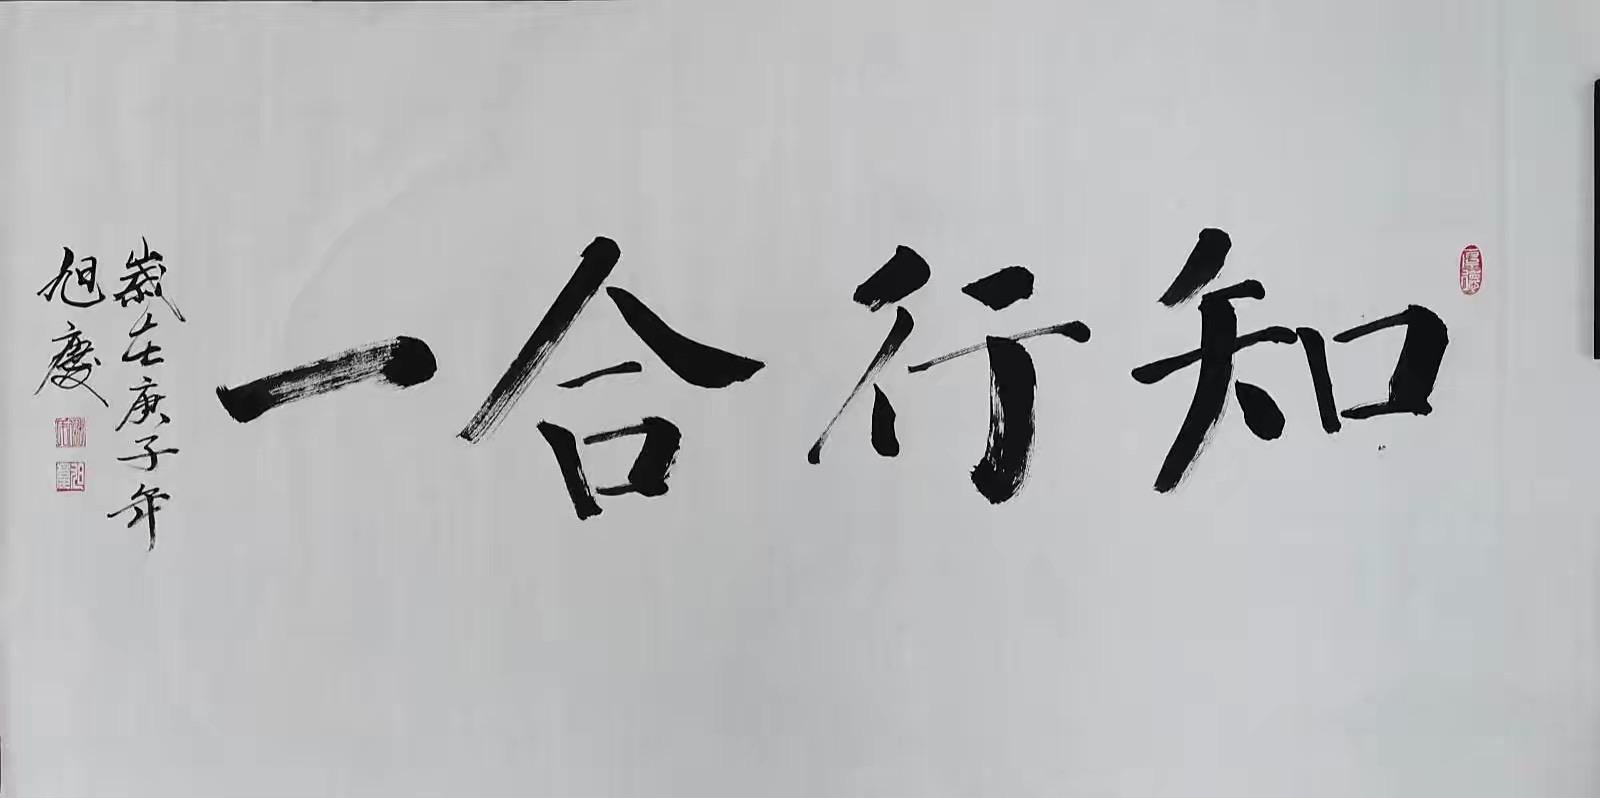 知行合一
歲在庚子年
旭慶
厚德